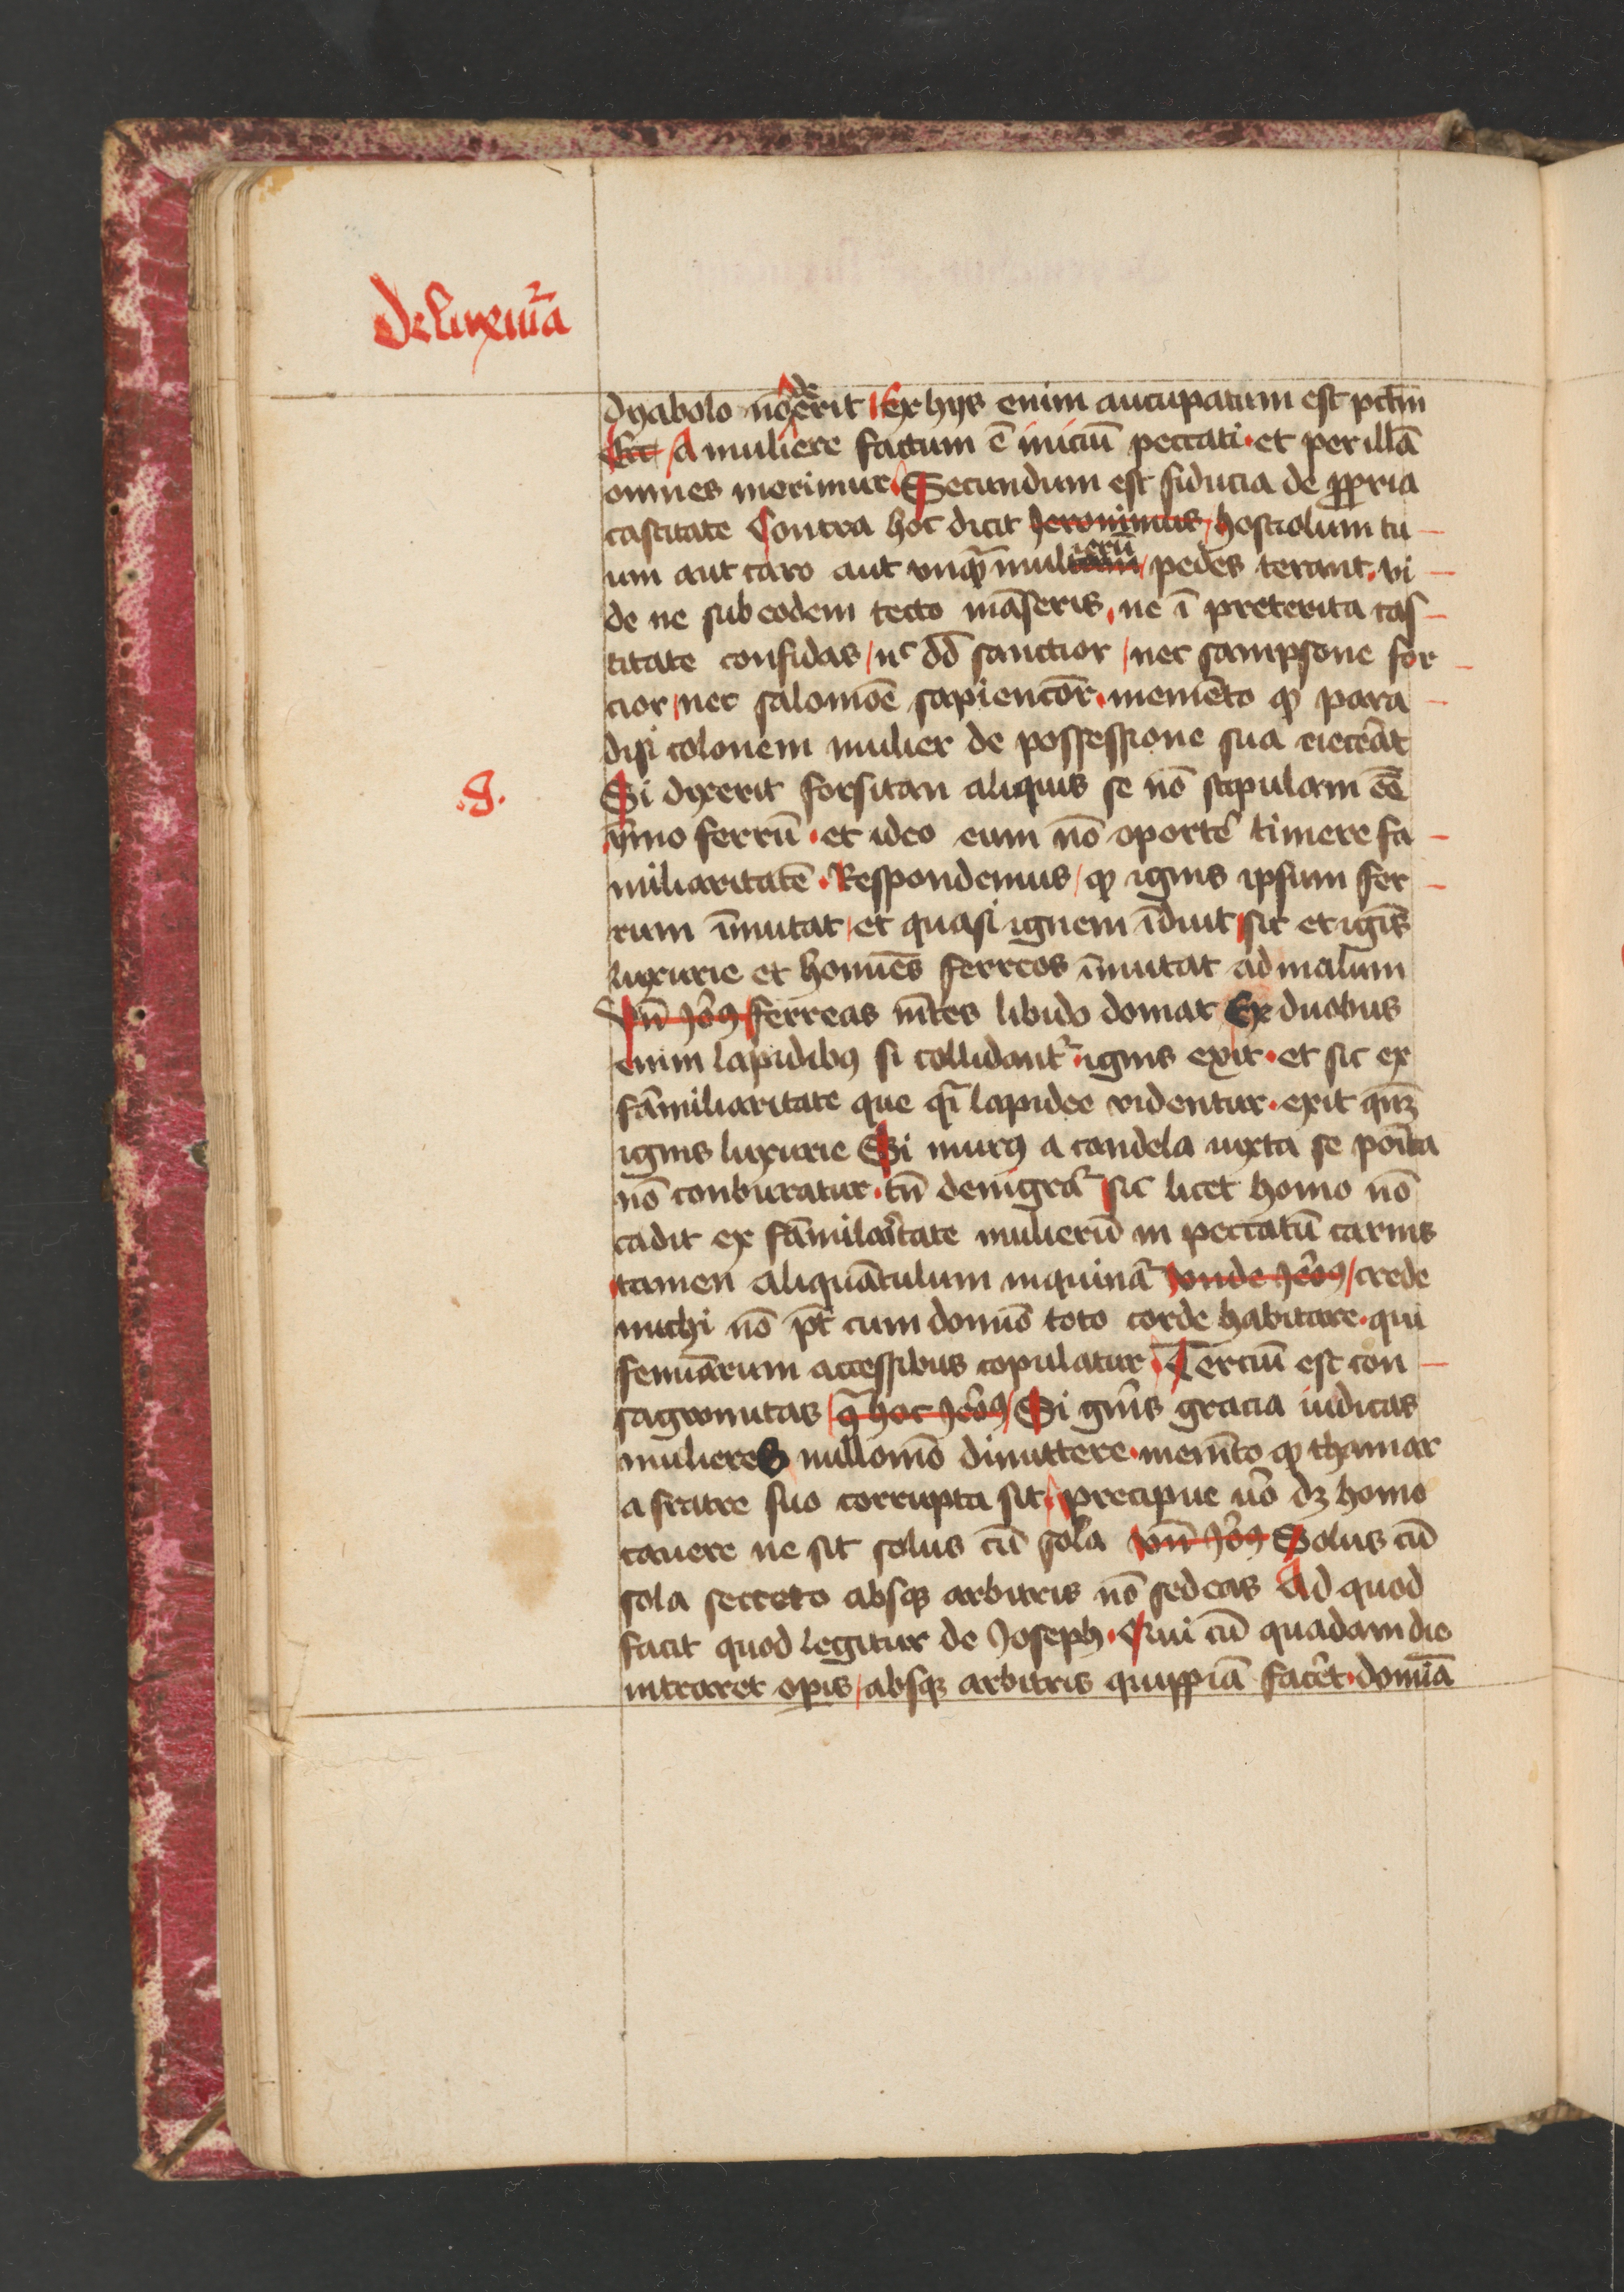 De luxuria
dyabolo nō de erit Ex hijs enim aucupatum est pctm̄
Ecc A muliere factum ē iniciū peccati et per illā
omnes morimur Secundum est fiducia de ꝓpria
castitate Contra hoc dicit Jeronimus hostiolum tu
um aut raro aut vnqᷓ mulierū pedes terant vi
de ne sub eodem tecto māseris ne ī preterita cas
titate confidas nc dd̄ sanctior nec sampsone for
cior nec salomōe sapiencior memēto ꝙ para
disi colonem mulier de possessione sua eiecerat
.8.
Si dyxerit forsitan aliquis se nō stipulam eē
ymo ferrū et ideo eum nō oportē timere fa
miliaritatē Respondemus ꝙ ignis ipsum fer
rum īmutat et quasi ignem īduit sic et ignis
luxurie et homīes ferreos īmutat ad malum
Vn̄ Jeōꝯ ferreas mētes libido domat Ex duobus
enim lapidibꝫ si collidantᷣ ignis exit et sic ex
familiaritate que qi lapidee videntur exit qn̄qꝫ
ignis luxurie Si murꝯ a candela iuxta se poīta
nō conburatur tn̄ denigratᷣ sic licet homo nō
cadit ex familiaritate mulierū in peccatū carnis
tamen aliquātulum inquināt Vnde Jeōꝯ crede
michi nō pt̄ cum domīo toto corde habitare qui
femīarum accessibus copulatur Terciū est con
sagwinitas 9ͣ hoc Jeōꝯ Si gn̄is gracia iudicas
mulieres nullomō dimittere memēto ꝙ thamar
a fratre suo corrupta sit precipue v̄o dꝫ homo
cauere ne sit solus cū sola vn̄ Jeōꝯ Solus cū
sola secreto absqꝫ arbitris nō sedeas Ad quod
facit quod legitur de Joseph Qui cū quadam die
intraret opis absqꝫ arbitris quippiā facēt domīa